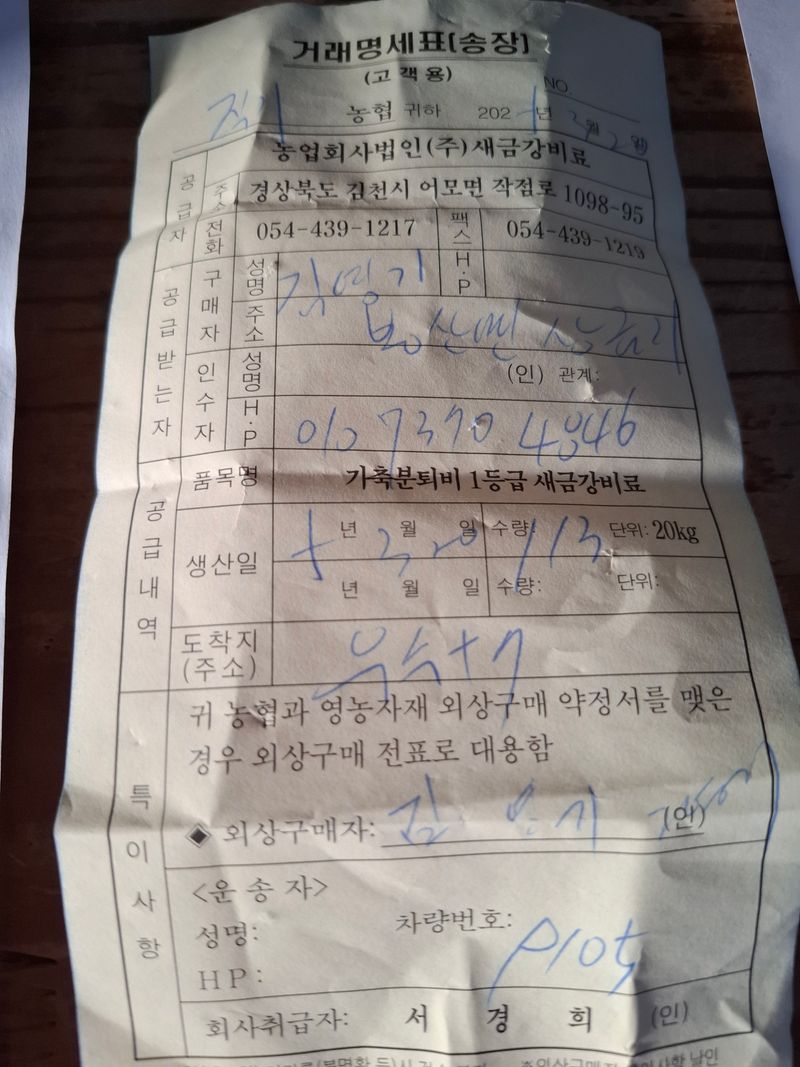 거래명세표[송장]
(고객용)
NO.
농협 귀하 202 년 3월 2일
농업회사법인(주)새금강비료
공급자
주소
경상북도 김천시 어모면 작점로 1098-95
전화 054-439-1217 팩스 054-439-1219
공급받는자
구매자
성명 김영기 H.P
주소
인수자
성명 (인) 관계:
H.P 010 7370 4846
공급내역
품목명 가축분퇴비 1등급 새금강비료
생산일
년 월 일 수량: 113 단위: 20kg
년 월 일 수량: 단위:
도착지
(주소)
특이사항
귀 농협과 영농자재 외상구매 약정서를 맺은
경우 외상구매 전표로 대용함
◈ 외상구매자: 김영기 (인)
<운송자>
성명: 차량번호:
HP:
회사취급자: 서경희 (인)